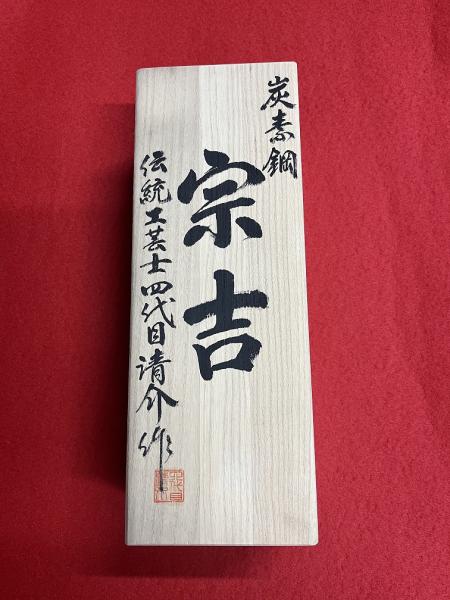 炭素鋼
宗吉
伝統工芸士四代目請介作